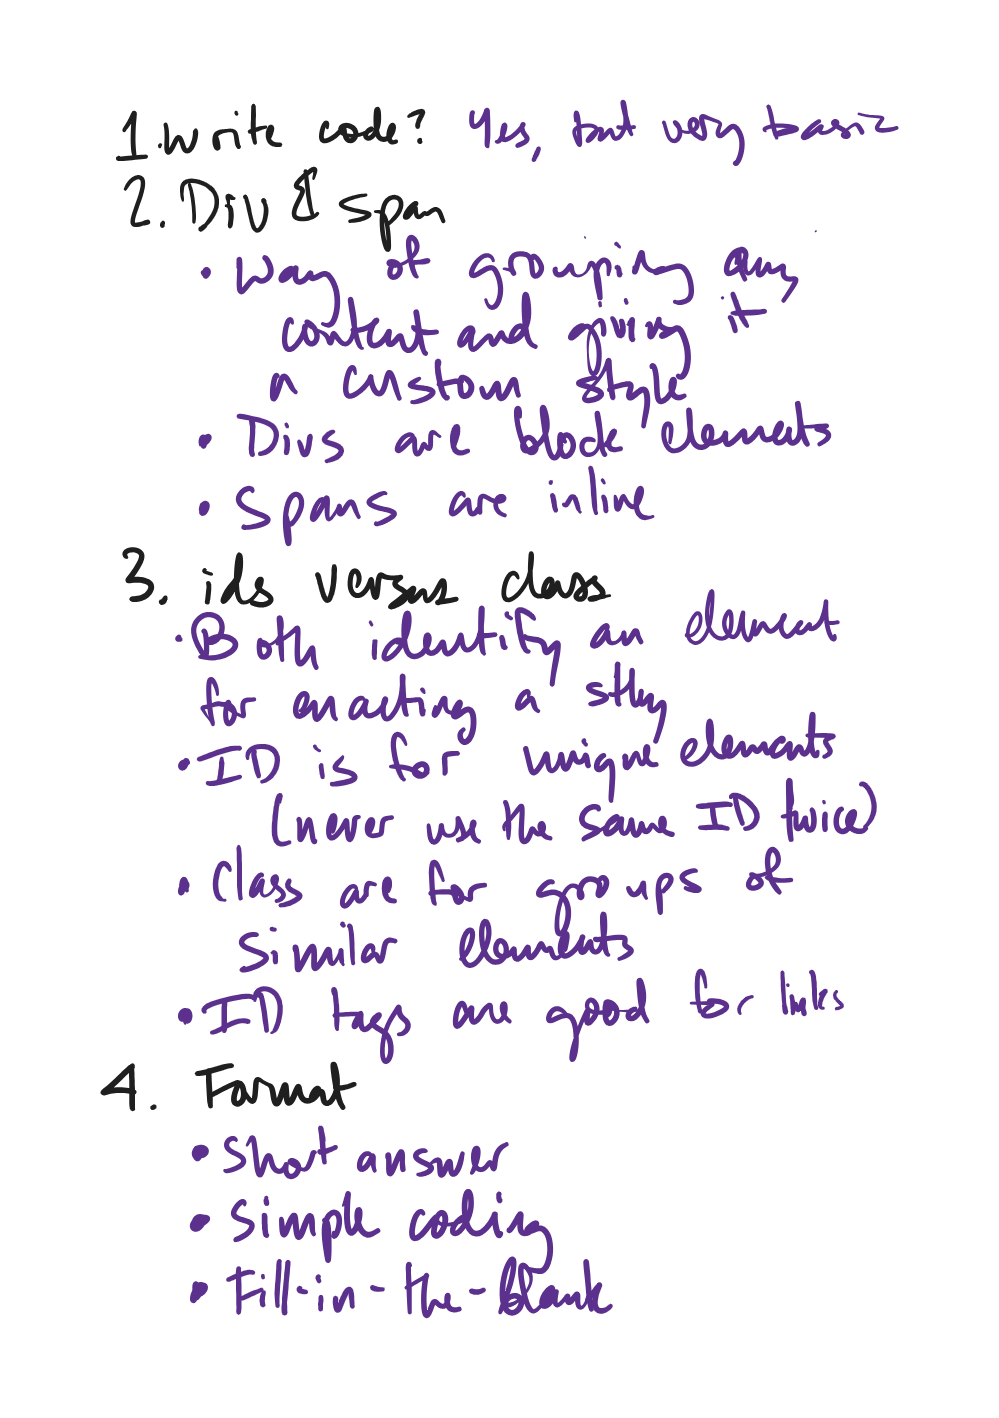 1. write code? Yes, but very basic
2. Div & span
• Way of grouping any
content and giving it
a custom style
• Divs are block elements
• Spans are inline
3. ids versus class
• Both identify an element
for enacting a
• ID is for unique elements
(never use the same ID twice)
• Class are for groups of
similar elements
• ID tags are good for links
4. Format
• Short answer
• Simple coding
• Fill-in-the-blank